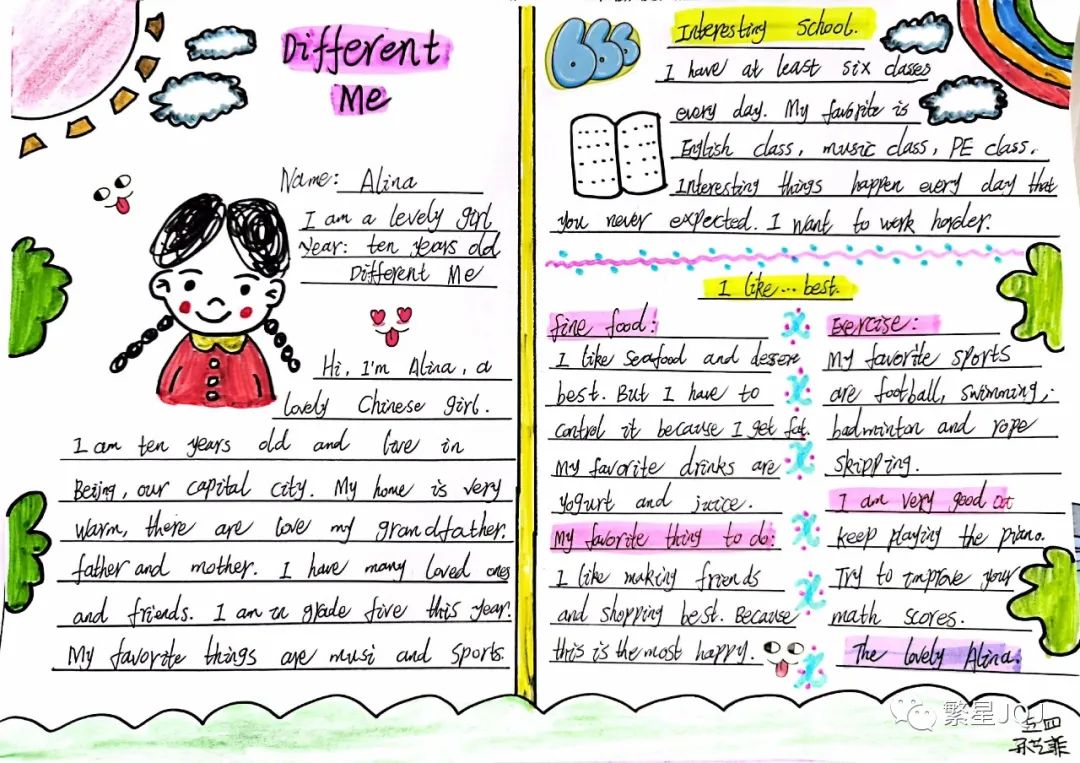 Different
Me
Name: Alina
I am a lovely girl
Year: ten years old
Different Me
Hi, I'm Alina, a
lovely Chinese girl.
I am ten years old and live in
Beijng, our capital city. My home is very
warm, there are love my grandfather.
father and mother. I have many loved ones
and friends. I am in grade five this year.
My favorite things are musi and sports.
666
Interesting School.
I have at least six classes
every day. My favorite is
English class, music class, PE class.
Interesting things happen every day that
you never expected. I want to work horder.
I like... best.
fine food:
I like seafood and dessere
best. But I have to
control it because I get fat.
My favorite drinks are
yogurt and juice.
My favorite thing to do:
I like making friends
and shopping best. Because
this is the most happy.
Exercise:
My favorite sports
are football, swimming,
badminton and rope
skipping.
I am very good at
keep playing the piano.
Try to improve your
math scores.
The lovely Alina.
繁星JOJ
五四
孙艺菲